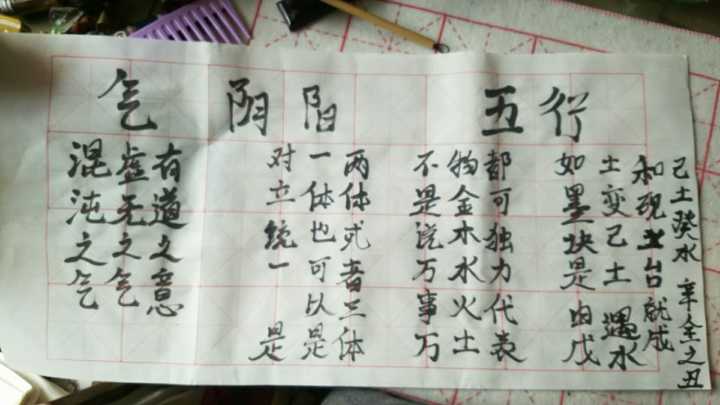 气 阴阳 五行
混沌之气
虚无之气
有道之意
对立统一 是
一体也可以是
两体或者三体
不是说万事万
物金木水火土
都可独力代表
如墨块是由戊
土变己土 遇水
和砚土台就成
己土癸水 辛金之丑